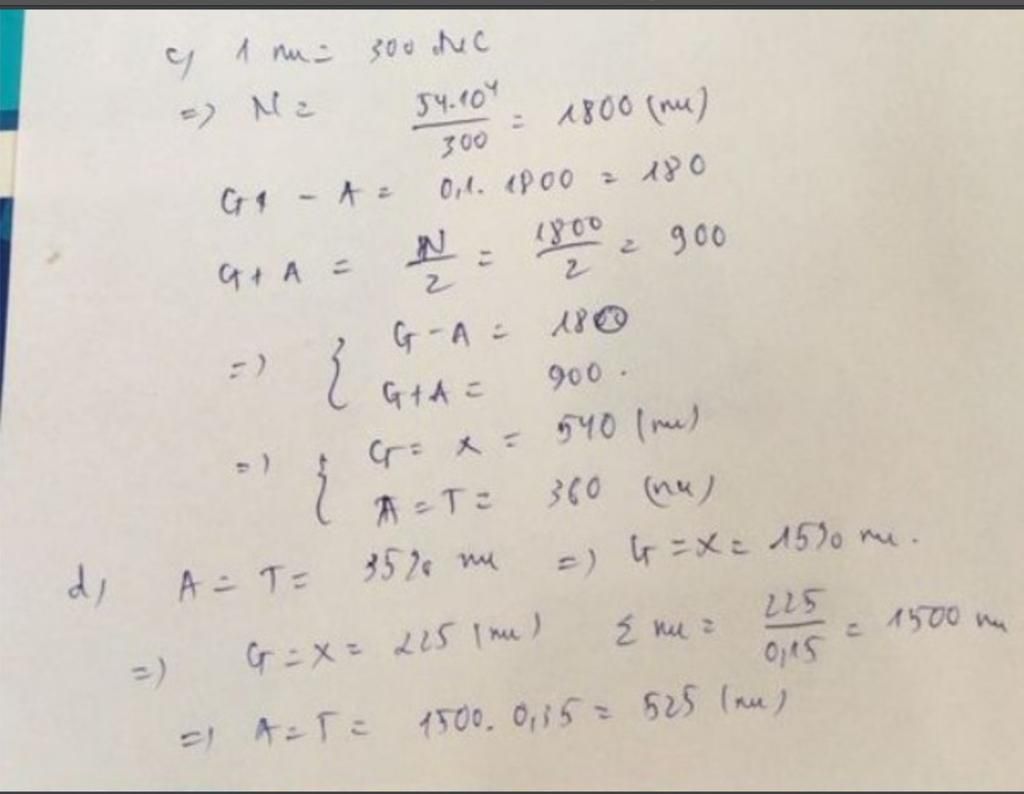 c) 1 nu = 300 đvC
=> N = 54.10⁴/300 = 1800 (nu)
G1 - A = 0,1. 1800 = 180
G + A = N/2 = 1800/2 = 900
=> { G - A = 180
G + A = 900.
=> { G = X = 540 (nu)
A = T = 360 (nu)
d) A = T = 35% nu => G = X = 15% nu.
=> G = X = 225 (nu) Σ nu = 225/0,15 = 1500 nu
=> A = T = 1500. 0,35 = 525 (nu)